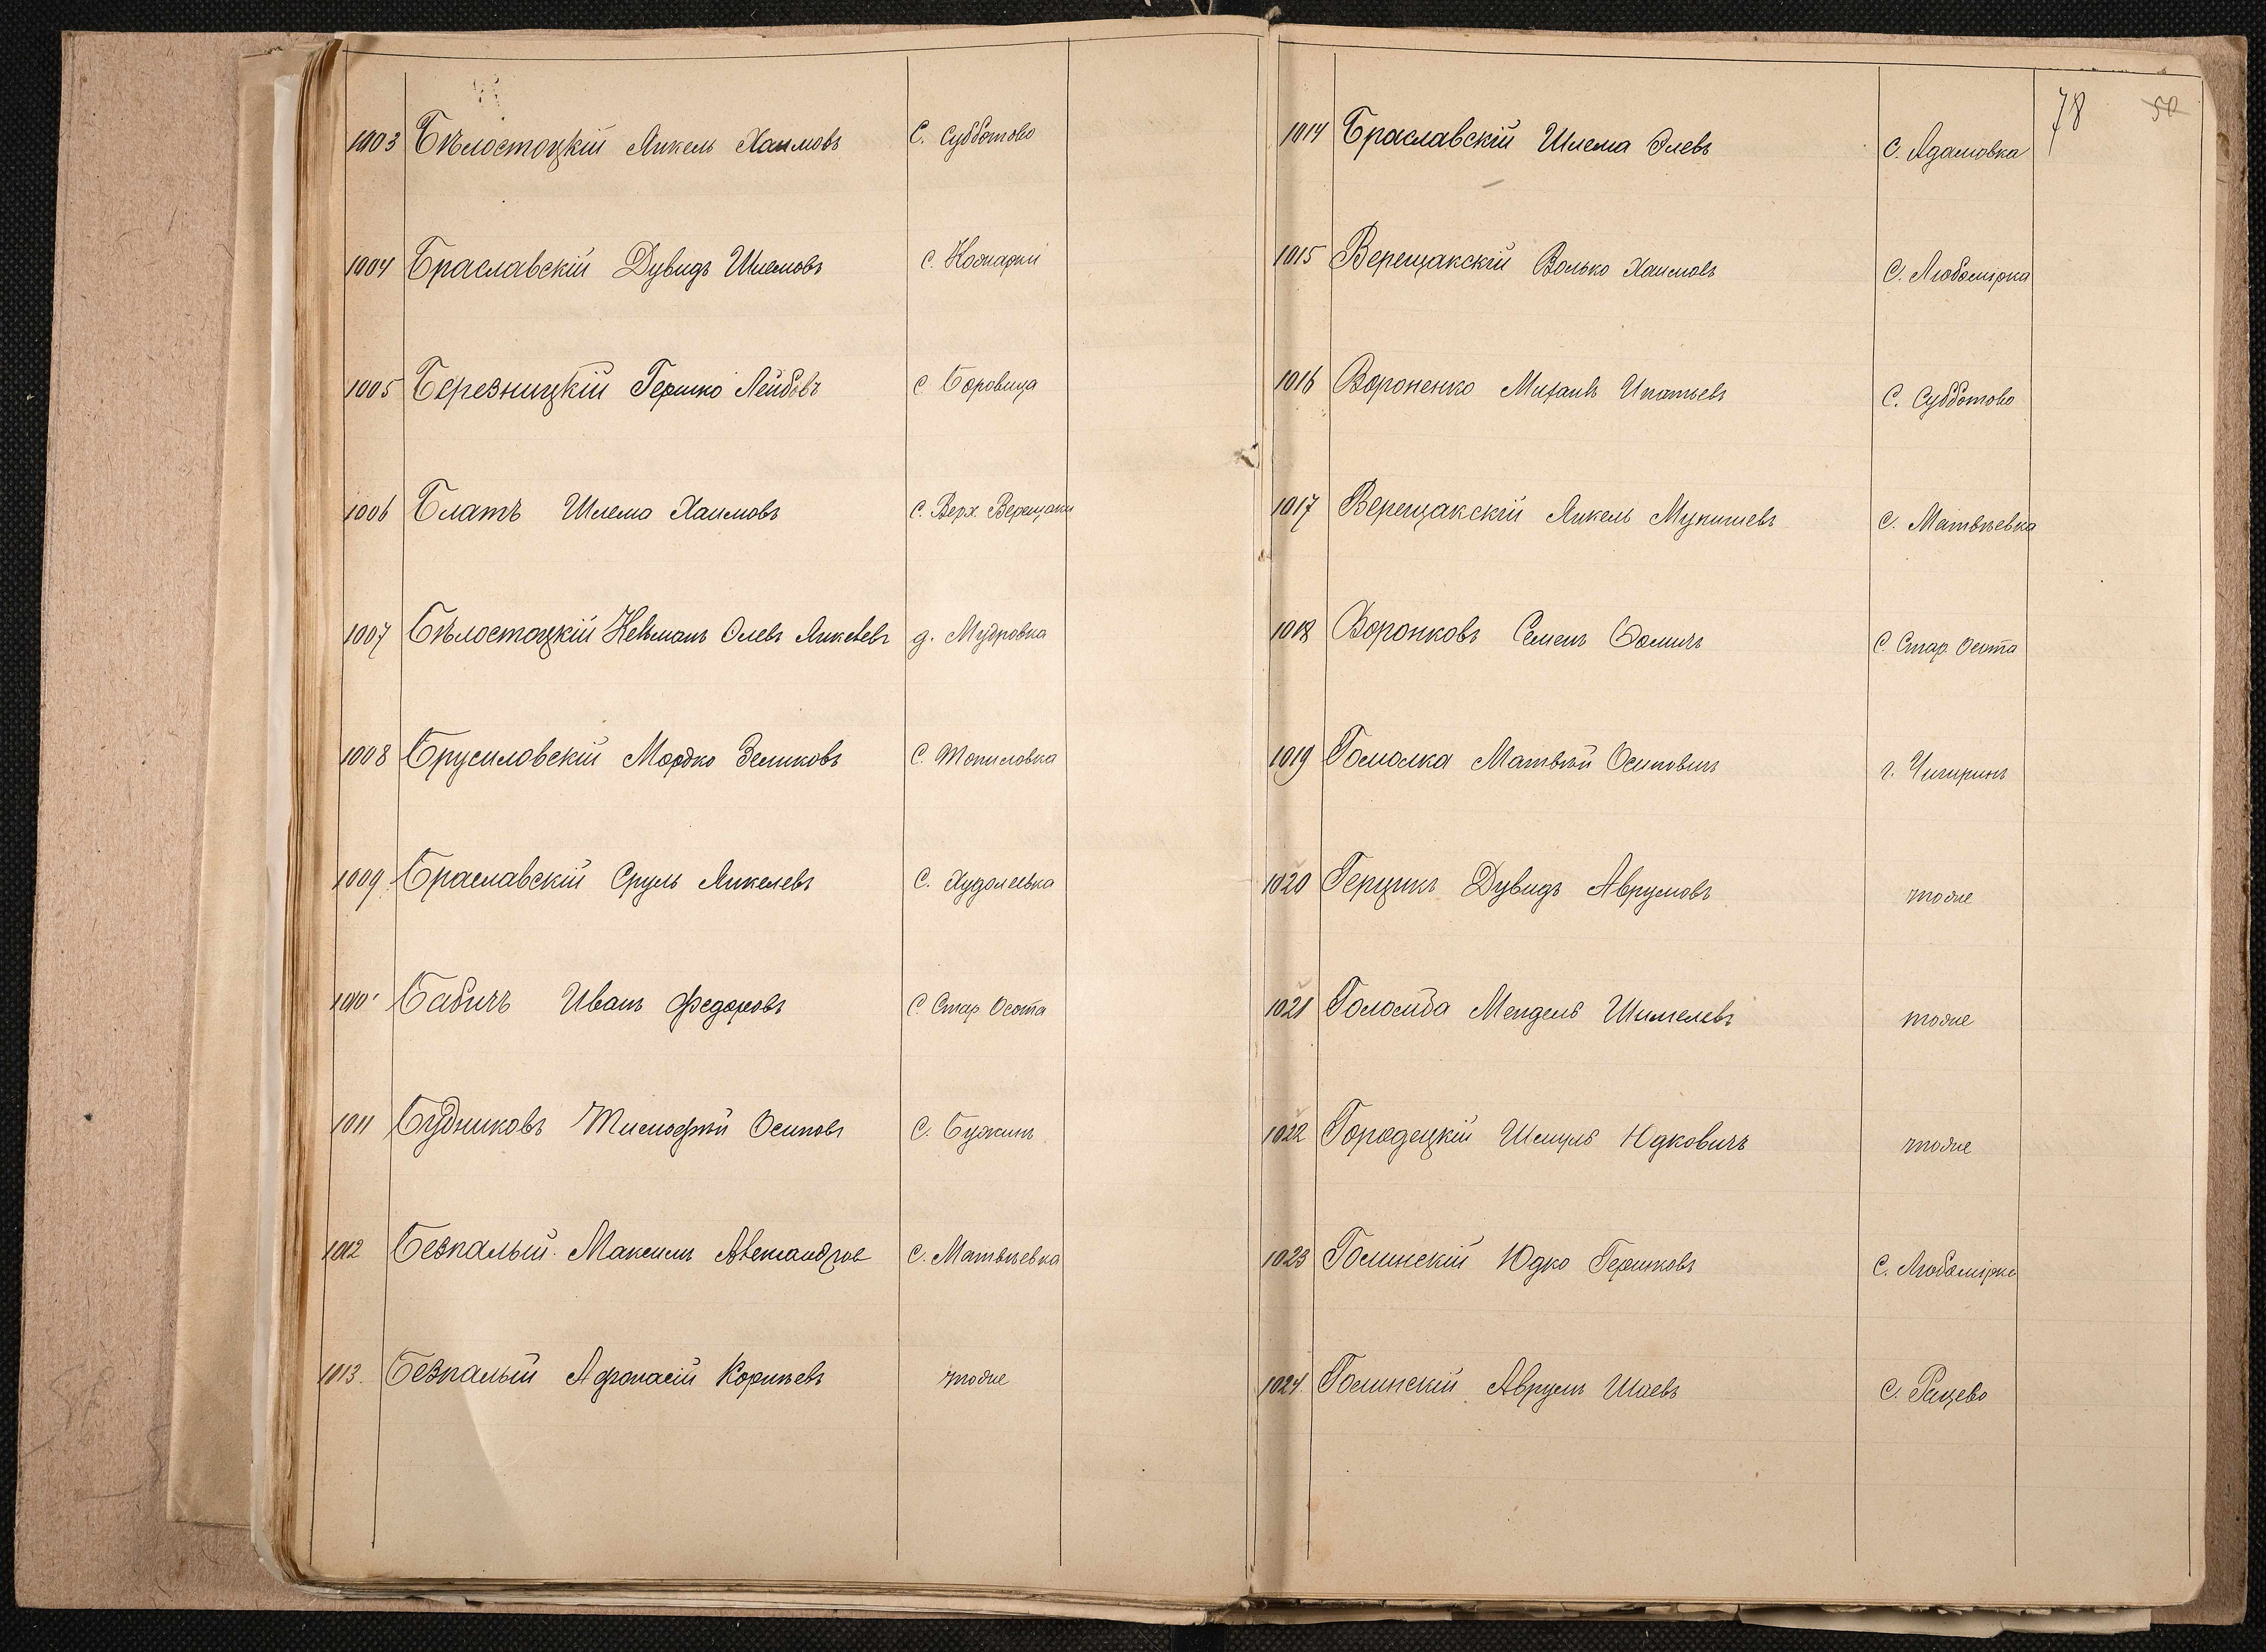 1003 Бѣлостоцкій Янкель Хаимовъ С. Субботово
1004 Браславскій Дувидъ Шлемовъ С. Косчарки
1005 Березницкій Гершко Лейбовъ С Боровица
1006 Блатъ Шлема Хаимовъ С. Верх. Верещаки
1007 Бѣлостоцкій Нехманъ Олевъ Янкелевъ д. Мудровка
1008 Брусиловскій Мордко Зеликовъ С. Топиловка
1009 Браславскій Сруль Янкелевъ С. Худолеевка
1010 Бабичъ Иванъ Федоровъ С Стар Осота
1011 Будниковъ Тимофѣй Осиповъ С. Бужинъ
1012 Безпалый Максимъ Александров С. Матвѣевка
1013. Безпалый Афонасій Корнѣевъ тоже
78 50
1014 Браславскій Шлема Элевъ С. Адамовка
1015 Верещакскій Волько Хаимовъ С. Любомирка
1016 Вороненко Михаилъ Ипатьевъ С. Субботово
1017 Верещакскій Янкель Мунишевъ С. Матвѣевка
1018 Воронковъ Семенъ Фомичъ С. Стар Осота
1019 Гомолка Матвѣй Осиповичъ г. Чигиринъ
1020 Герцикъ Дувидъ Аврумовъ тоже
1021 Голомба Мендель Шимелевъ тоже
1022 Городецкій Шмуль Юдковичъ тоже
1023 Голинскій Юдко Гершковъ С. Любомирка
1024. Голинскій Аврумъ Шаевъ С. Рацево